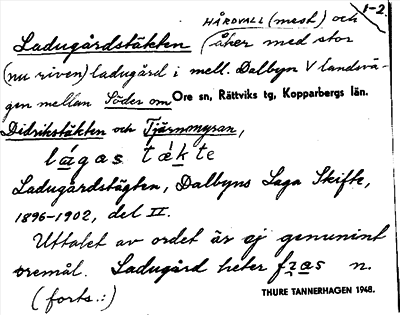 HÅRDVALL (mest) och 1-2.
Ladugårdstäkten (åker med stor
(nu riven) ladugård i mell. Dalbyn V landsvä-
gen mellan Söder om Ore sn, Rättviks tg, Kopparbergs län.
Didrikstäkten och Tjärnmyran,
lágas tǽkte
Ladugårdstägten, Dalbyns Laga Skifte,
1896-1902, del II.
Uttalet av ordet är ej genuinint
oremål. Ladugård heter n.
(forts.:) THURE TANNERHAGEN 1948.